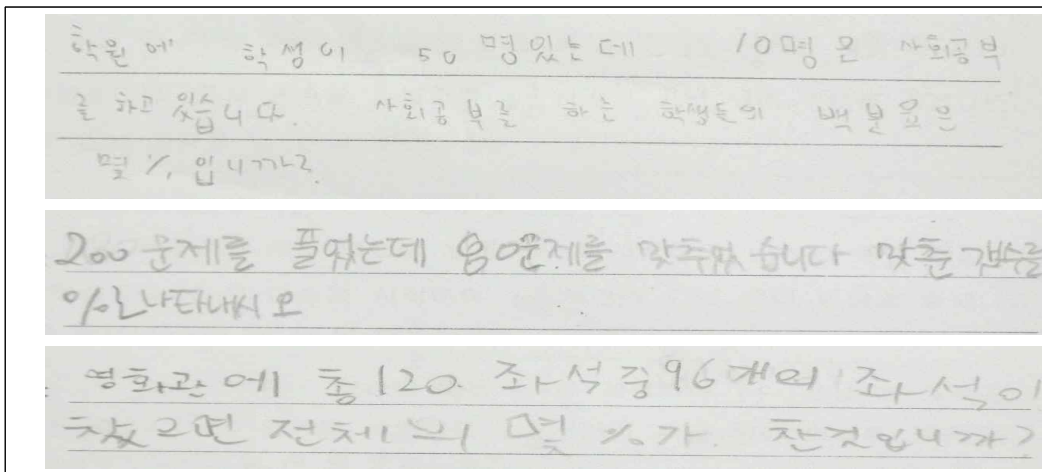 학원에 학생이 50명있는데 10명은 사회공부
를 하고 있습니다. 사회공부를 하는 학생들의 백분율은
몇 % 입니까?
200문제를 풀었는데 80문제를 맞추었습니다 맞춘 갯수를
%로 나타내시오
영화관에 총 120 좌석 중 96개의 좌석이
찼으면 전체의 몇 %가 찬것입니까?